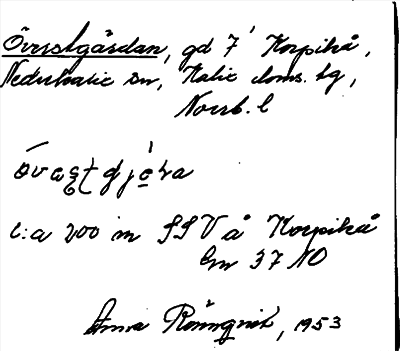 Överstgården, gd 7¹ Korpikå,
Nederkalix sn, Kalix doms. tg,
Norrb. l
c:a 200 m SSV å Korpikå
bm 37 NO
Anna Rönnqvist, 1953